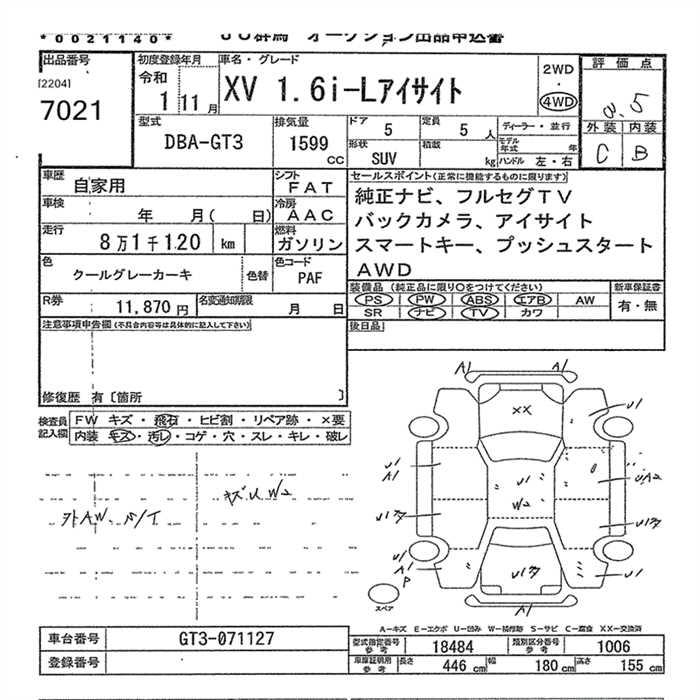 *0021140*
JU群馬 オークション出品申込書
出品番号
[2204]
7021
初度登録年月
令和
1 11 月
車名・グレード
XV 1.6i-Lアイサイト
2WD
・
4WD
評価点
3.5
外装 内装
C B
型式
DBA-GT3
排気量
1599
CC
ドア
5
定員
5 人
ディーラー・並行
形状
SUV
積載
kg
モデル年式
年
ハンドル 左・右
車歴
自家用
シフト
FAT
車検
年 月( 日)
冷房
AAC
走行
8万1千120 km
燃料
ガソリン
色
クールグレーカーキ
色替
色コード
PAF
R券
11,870 円
名変通知期限
月 日
セールスポイント(正常に機能するものに限ります)
純正ナビ、フルセグTV
バックカメラ、アイサイト
スマートキー、プッシュスタート
AWD
装備品 (純正品に限り○をつけてください)
新車保証書
PS PW ABS エアB AW
SR ナビ TV カワ
有・無
後日品
注意事項申告欄(不具合内容等は具体的に記入して下さい)
修復歴 有〔箇所 〕
検査員記入欄
FW キズ・飛石・ヒビ割・リペア跡・×要
内装 キズ・汚れ・コゲ・穴・スレ・キレ・破レ
外AW.
キズU W2
A1 A1
XX
U1
U1
A1
U1
W2
UA2
U1
A1
P
スペア
A-キズ E-エクボ U-凹み W-補修跡 S-サビ C-腐食 XX-交換済
車台番号
GT3-071127
登録番号
型式指定番号
参考
18484
類別区分番号
参考
1006
車庫証明用
参考
長さ
446 cm
幅
180 cm
高さ
155 cm